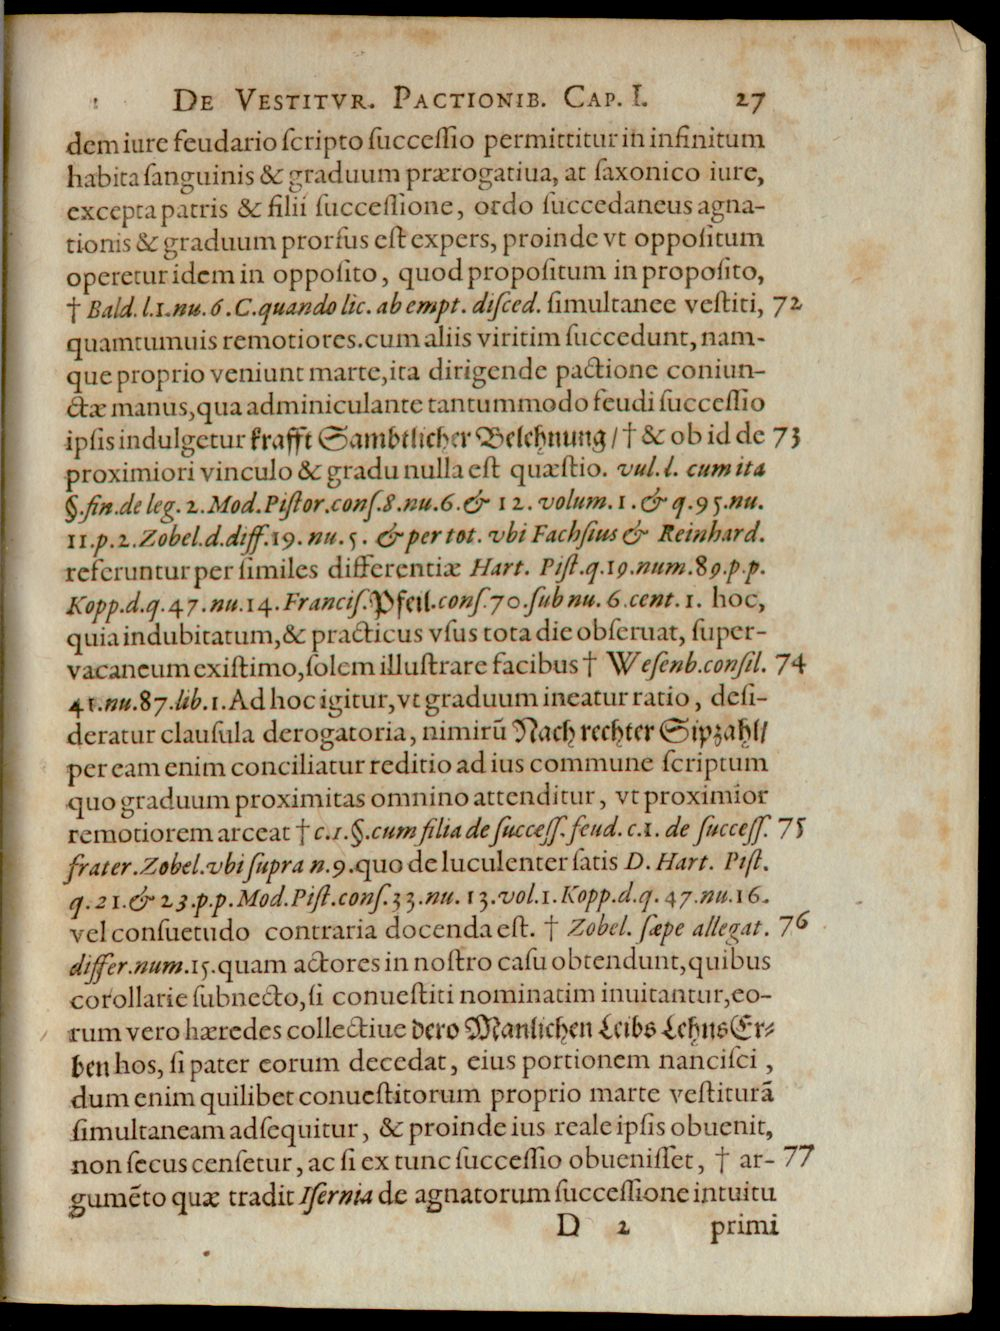 DE VESTITVR. PACTIONIB. CAP. I. 27
dem iure feudario scripto successio permittitur in infinitum
habita sanguinis & graduum prærogatiua, at saxonico iure,
excepta patris & filii successione, ordo succedaneus agna-
tionis & graduum prorsus est expers, proinde vt oppositum
operetur idem in opposito, quod propositum in proposito,
† Bald. l.1.nu. 6. C. quando lic. ab empt. disced. simultanee vestiti, 72
quamtumuis remotiores.cum aliis viritim succedunt, nam-
que proprio veniunt marte, ita dirigende pactione coniun-
ctæ manus, qua adminiculante tantummodo feudi successio
ipsis indulgetur krafft Sambtlicher Belehnung / † & ob id de 73
proximiori vinculo & gradu nulla est quæstio. vul. l. cum ita
§. fin. de leg. 2. Mod. Pistor. cons. 8. nu. 6. & 12. volum. 1. & q. 95. nu.
11. p. 2. Zobel. d. diff. 19. nu. 5. & per tot. vbi Fachsius & Reinhard.
referuntur per similes differentiæ Hart. Pist. q. 19. num. 89. p. p.
Kopp. d. q. 47. nu. 14. Francis. Pfeil. cons. 70. sub nu. 6. cent. 1. hoc,
quia indubitatum, & practicus vsus tota die obseruat, super-
vacaneum existimo, solem illustrare facibus † Wesenb. consil. 74
41. nu. 87. lib. 1. Ad hoc igitur, vt graduum ineatur ratio, desi-
deratur clausula derogatoria, nimirũ Nach rechter Sipzahl /
per eam enim conciliatur reditio ad ius commune scriptum
quo graduum proximitas omnino attenditur, vt proximior
remotiorem arceat † c. 1. §. cum filia de success. feud. c. 1. de success. 75
frater. Zobel. vbi supra n. 9. quo de luculenter satis D. Hart. Pist.
q. 21. & 23. p. p. Mod. Pist. cons. 33. nu. 13. vol. 1. Kopp. d. q. 47. nu. 16.
vel consuetudo contraria docenda est. † Zobel. sæpe allegat. 76
differ. num. 15. quam actores in nostro casu obtendunt, quibus
corollarie subnecto, si conuestiti nominatim inuitantur, eo-
rum vero hæredes collectiue dero Manlichen Leibs Lehns Er-
ben hos, si pater eorum decedat, eius portionem nancisci,
dum enim quilibet conuestitorum proprio marte vestiturã
simultaneam adsequitur, & proinde ius reale ipsis obuenit,
non secus censetur, ac si ex tunc successio obuenisset, † ar- 77
gumẽto quæ tradit Isernia de agnatorum successione intuitu
D 2 primi